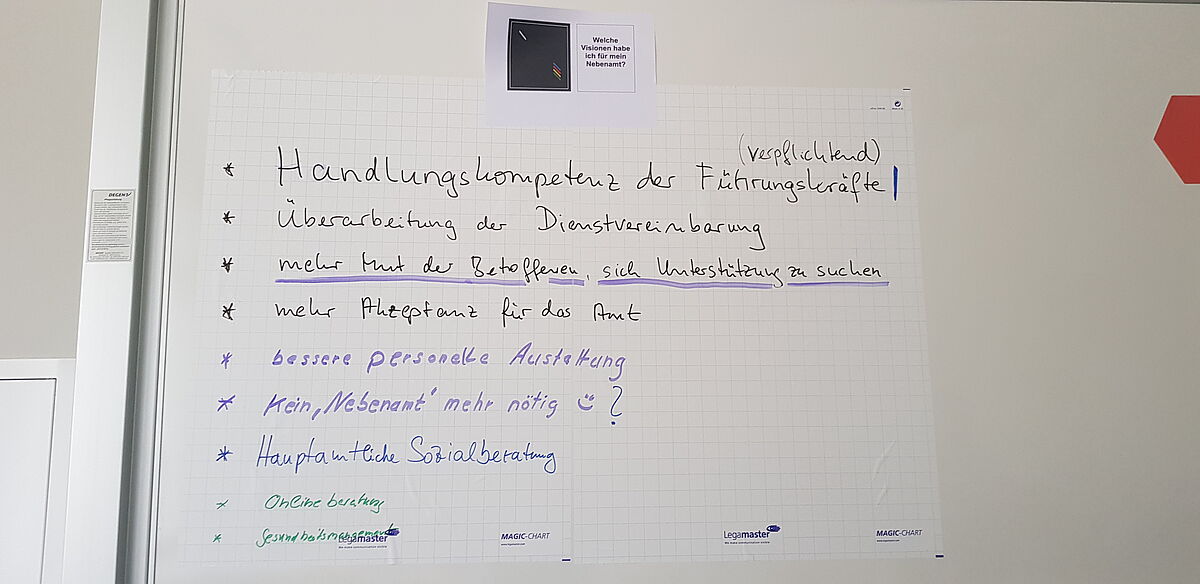 Welche
Visionen habe
ich für mein
Nebenamt?
(verpflichtend)
* Handlungskompetenz der Führungskräfte
* Überarbeitung der Dienstvereinbarung
* mehr Mut der Betoffenen, sich Unterstützung zu suchen
* mehr Akzeptanz für das Amt
* bessere personelle Austattung
* Kein „Nebenamt" mehr nötig ?
* Hauptamtliche Sozialberatung
* Onlineberatung
* Gesundheitsmanagement
Legamaster
MAGIC-CHART
Legamaster
MAGIC-CHART
DEGEN